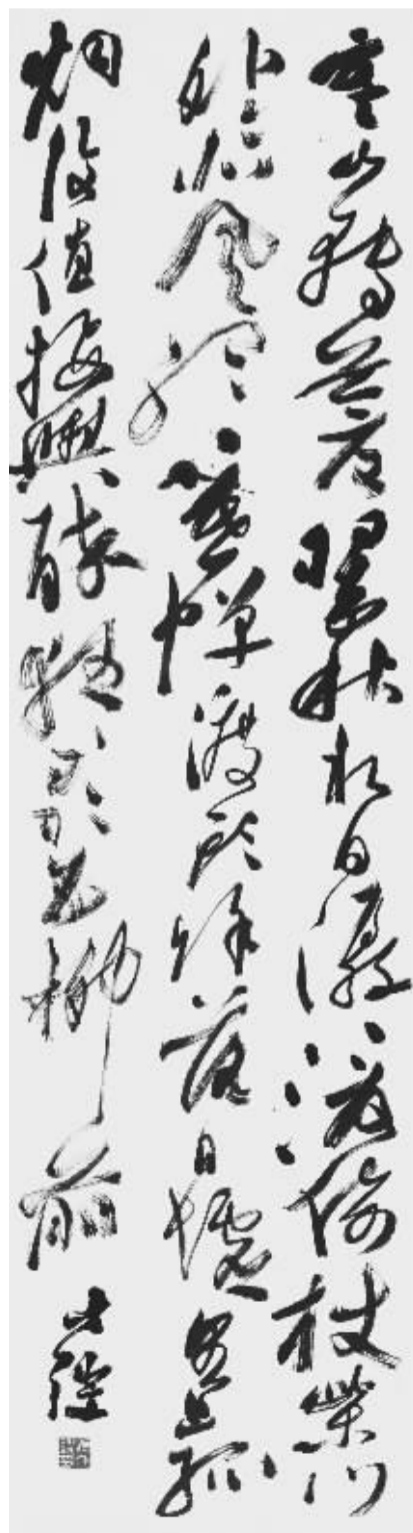 寒山轉蒼翠秋水日潺湲倚杖柴門
外臨風聽暮蟬渡頭餘落日墟里上孤
烟復值接輿醉狂歌五柳前